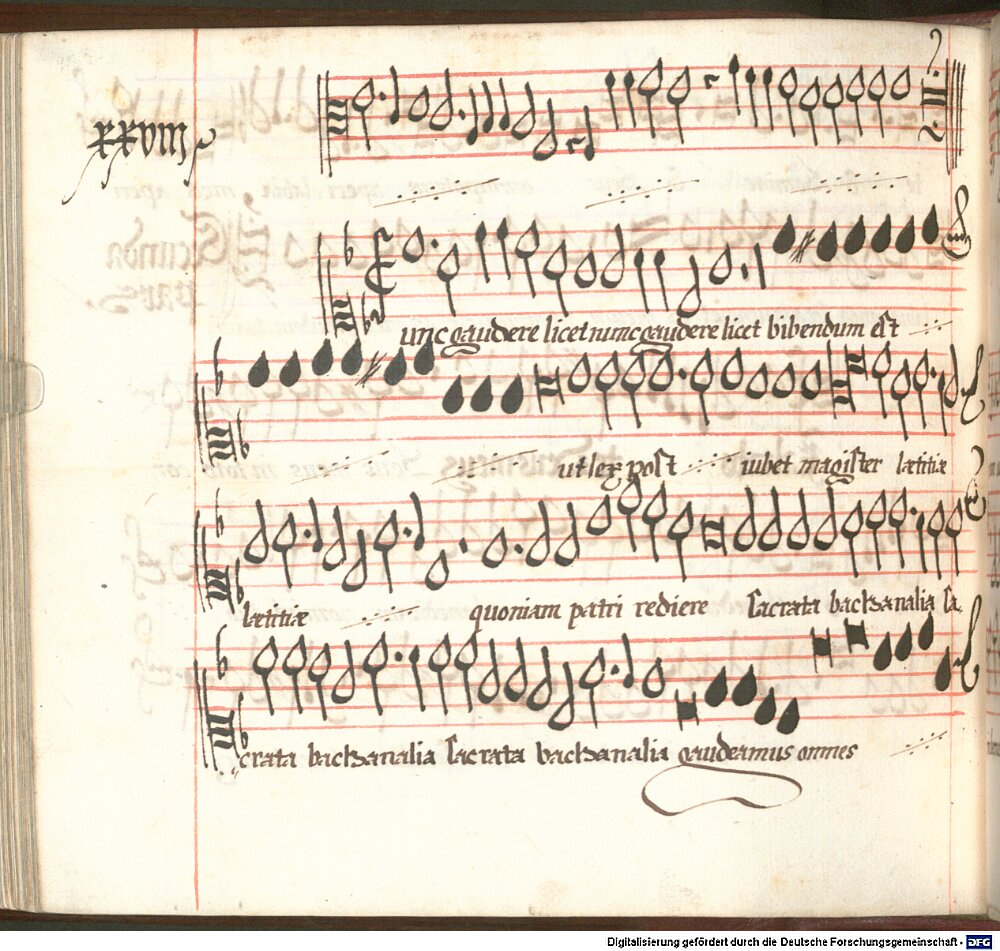 xxviij
unc gaudere licet nunc gaudere licet bibendum est
ut lex post iubet magister lætitiæ
lætitiæ quoniam patri rediere sacrata bachanalia sa-
crata bachanalia sacrata bachanalia gaudeamus omnes
Digitalisierung gefördert durch die Deutsche Forschungsgemeinschaft - DFG